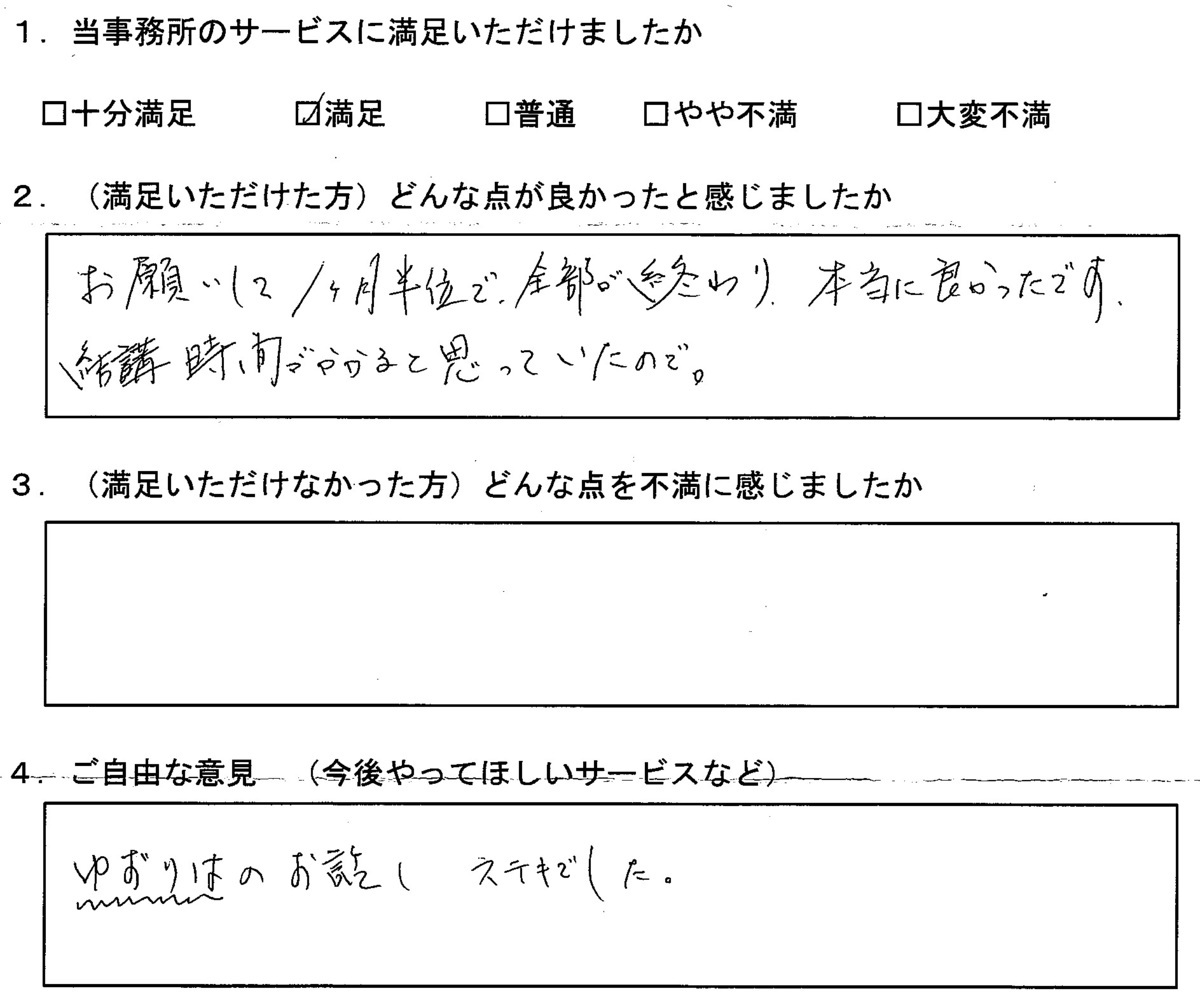 １．当事務所のサービスに満足いただけましたか
□十分満足　☑満足　□普通　□やや不満　□大変不満
２．（満足いただけた方）どんな点が良かったと感じましたか
お願いして1ヶ月半位で、全部が終わり、本当に良かったです、
結講時間がかかると思っていたので。
３．（満足いただけなかった方）どんな点を不満に感じましたか
４．ご自由な意見　（今後やってほしいサービスなど）
ゆずりはのお話し　ステキでした。